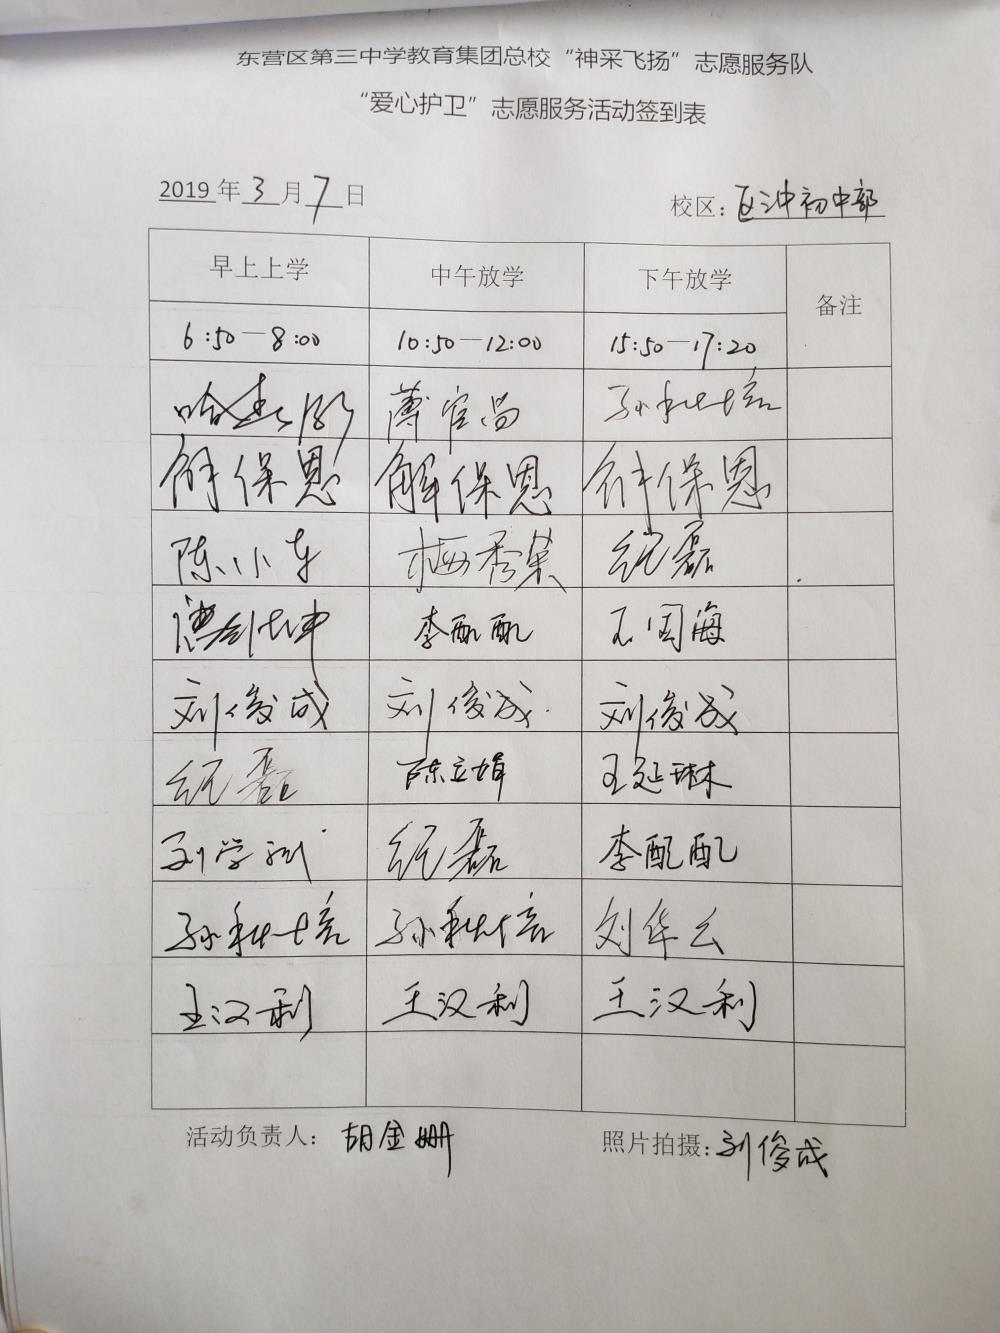 东营区第三中学教育集团总校“神采飞扬”志愿服务队
“爱心护卫”志愿服务活动签到表
2019年3月7日 校区：区三中初中部
早上上学 中午放学 下午放学 备注
6:50—8:00 10:50—12:00 15:50—17:20
薄官昌
解保恩 解保恩 解保恩
陈小东 梅秀荣 纪磊
李配配 王国海
刘俊成 刘俊成 刘俊成
纪磊 陈立娟 王延琳
刘学斌 纪磊 李配配
孙 培 孙 培 刘华云
王汉利 王汉利 王汉利
活动负责人：胡金姗 照片拍摄：刘俊成